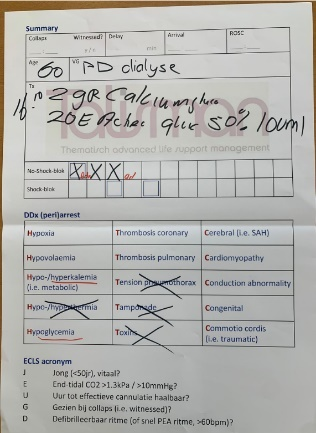 Summary
Collaps Witnessed? Delay Arrival ROSC
y / n min
Age 60 VG PD dialyse
To
16:10 2 gR Calciumgluc
20E Actrac gluc 50% 100ml
Thematisch advanced life support management
No-Shock-blok X X X
Shock-blok
DDx (peri)arrest
Hypoxia Thrombosis coronary Cerebral (i.e. SAH)
Hypovolaemia Thrombosis pulmonary Cardiomyopathy
Hypo-/hyperkalemia Tension pneumothorax Conduction abnormality
(i.e. metabolic)
Hypo-/hyperthermia Tamponade Congenital
Hypoglycemia Toxins Commotio cordis
(i.e. traumatic)
ECLS acronym
J Jong (<50jr), vitaal?
E End-tidal CO2 >1.3kPa / >10mmHg?
U Uur tot effectieve cannulatie haalbaar?
G Gezien bij collaps (i.e. witnessed)?
D Defibrilleerbaar ritme (of snel PEA ritme, >60bpm)?